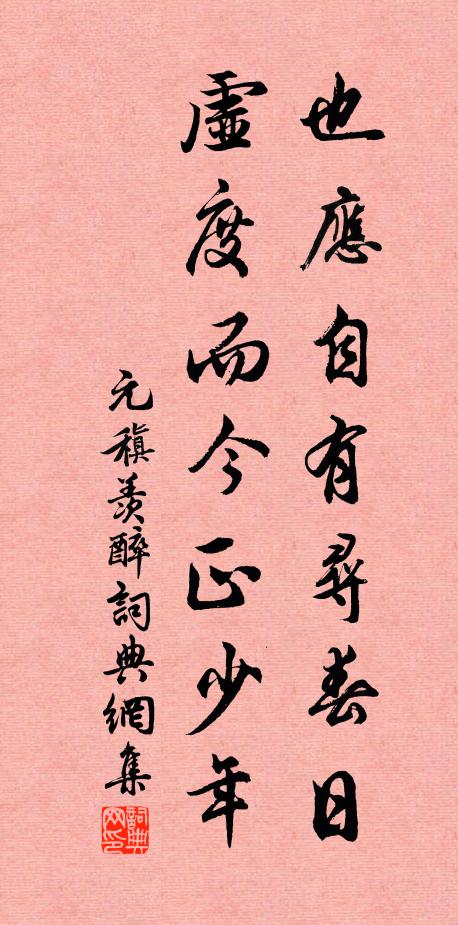 也應自有尋春日
虛度而今正少年
元稹羨醉詞典網集
詞典网印